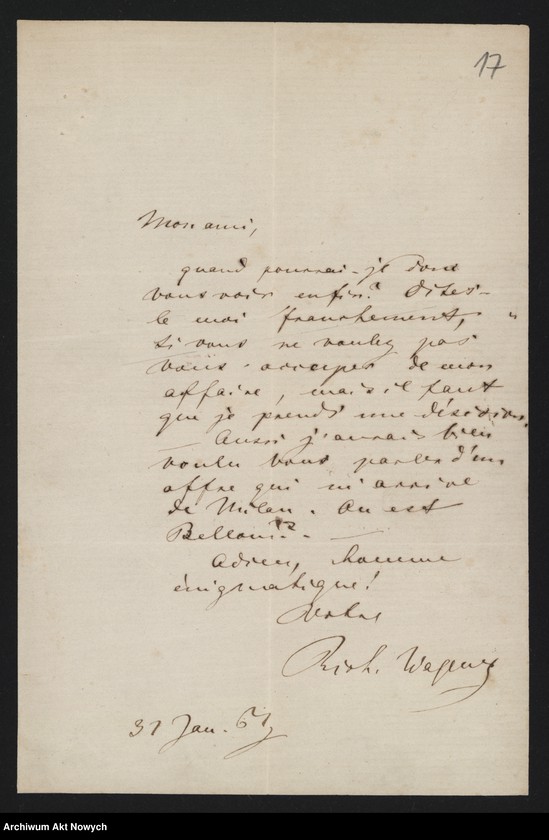 17
Mon ami,
quand pourrai-je donc
vous voir enfin? Dites-
le moi franchement,
si vous ne voulez pas
vous occuper de mon
affaire, mais il faut
que je prends une décision.
— Aussi j'aurais bien
voulu vous parler d'un
offre qui m'arrive
de Milan. Ou est
Belloni?? —
Adieu, homme
énigmatique!
Votre
Rich. Wagner
31 Jan. 61
Archiwum Akt Nowych